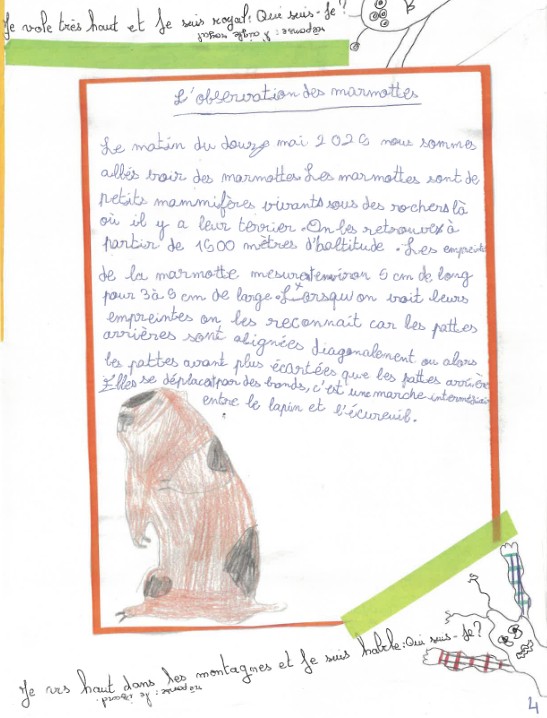 Je vole très haut et Je suis royal: Qui suis-Je?
réponse: l'aigle royal
B
L'observation des marmottes
Le matin du douze mai 2025 nous sommes
allés voir des marmottes. Les marmottes sont de
petits mammifères vivants sous des rochers là
où il y a leur terrier. On les retrouves à
partir de 1600 mètres d'haltitude. Les empreintes
de la marmotte mesurent environ 5 cm de long
pour 3 à 5 cm de large. Lorsqu'on voit leurs
empreintes on les reconnait car les pattes
arrières sont alignées diagonalement ou alors
les pattes avant plus écartées que les pattes arrière
Elles se déplacent par des bonds, c'est une marche intermédiaire
entre le lapin et l'écureuil.
Je vis haut dans les montagnes et Je suis habile: Qui suis-Je?
réponse: le
4